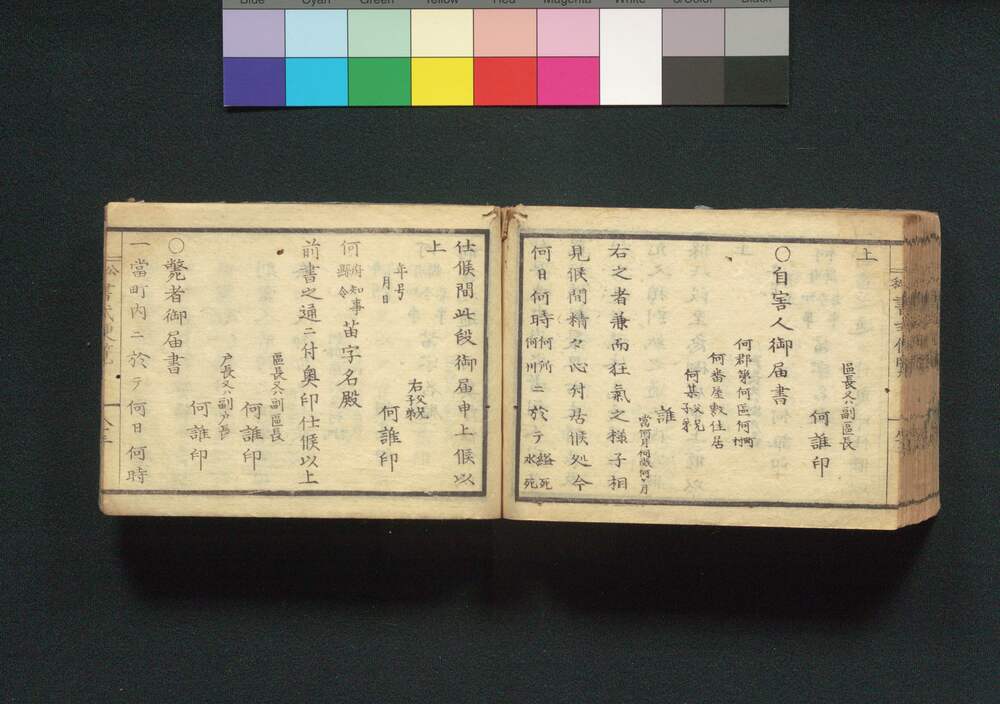 Blue Cyan Green Yellow Red Magenta White 3/Color Black
上
區長又ハ副區長
何誰印
○自害人御届書
何郡第何區何村
何番屋敷住居
何某父兄子弟
誰
當何月何歳何ヶ月
右之者兼而狂氣之様子相
見候間精々心付居候処今
何日何時何所何川ニ於テ縊死水死
仕候間此段御届申上候以
上
右父兄子弟
何誰印
年号
月日
何府知事縣令苗字名殿
前書之通ニ付奥印仕候以上
區長又ハ副區長
何誰印
戸長又ハ副戸長
何誰印
○斃者御届書
一當町内ニ於テ何日何時